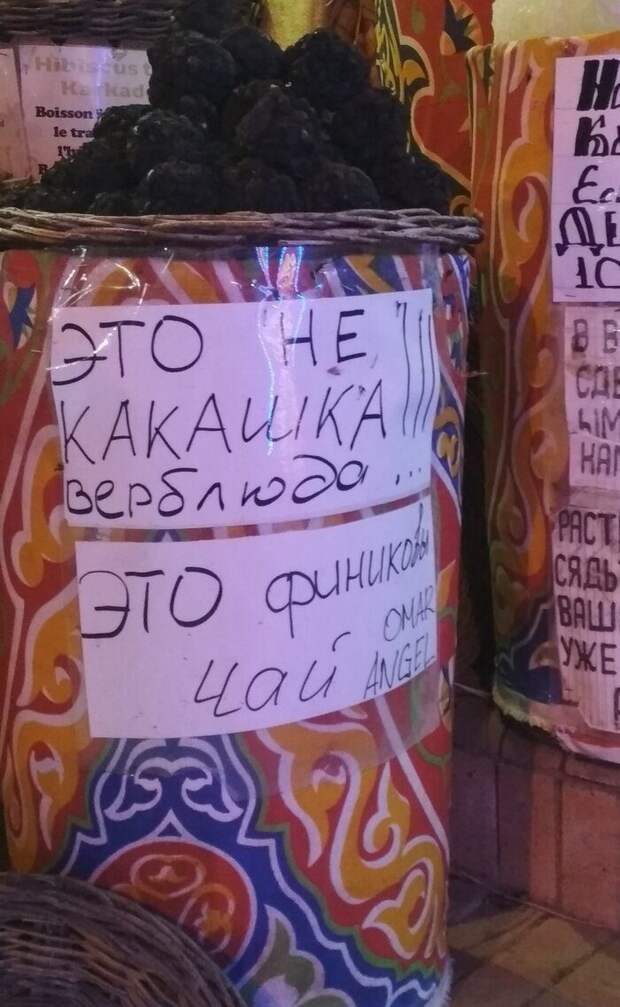 Hibiscus
Karkad
Boisson
le tra
ЭТО НЕ !!!
КАКАШКА
верблюда...
ЭТО финиковы
чай OMAR
ANGEL
10
В В
СДЕ
НАП
РАСТ
СЯДЬ
ВАШ
УЖЕ